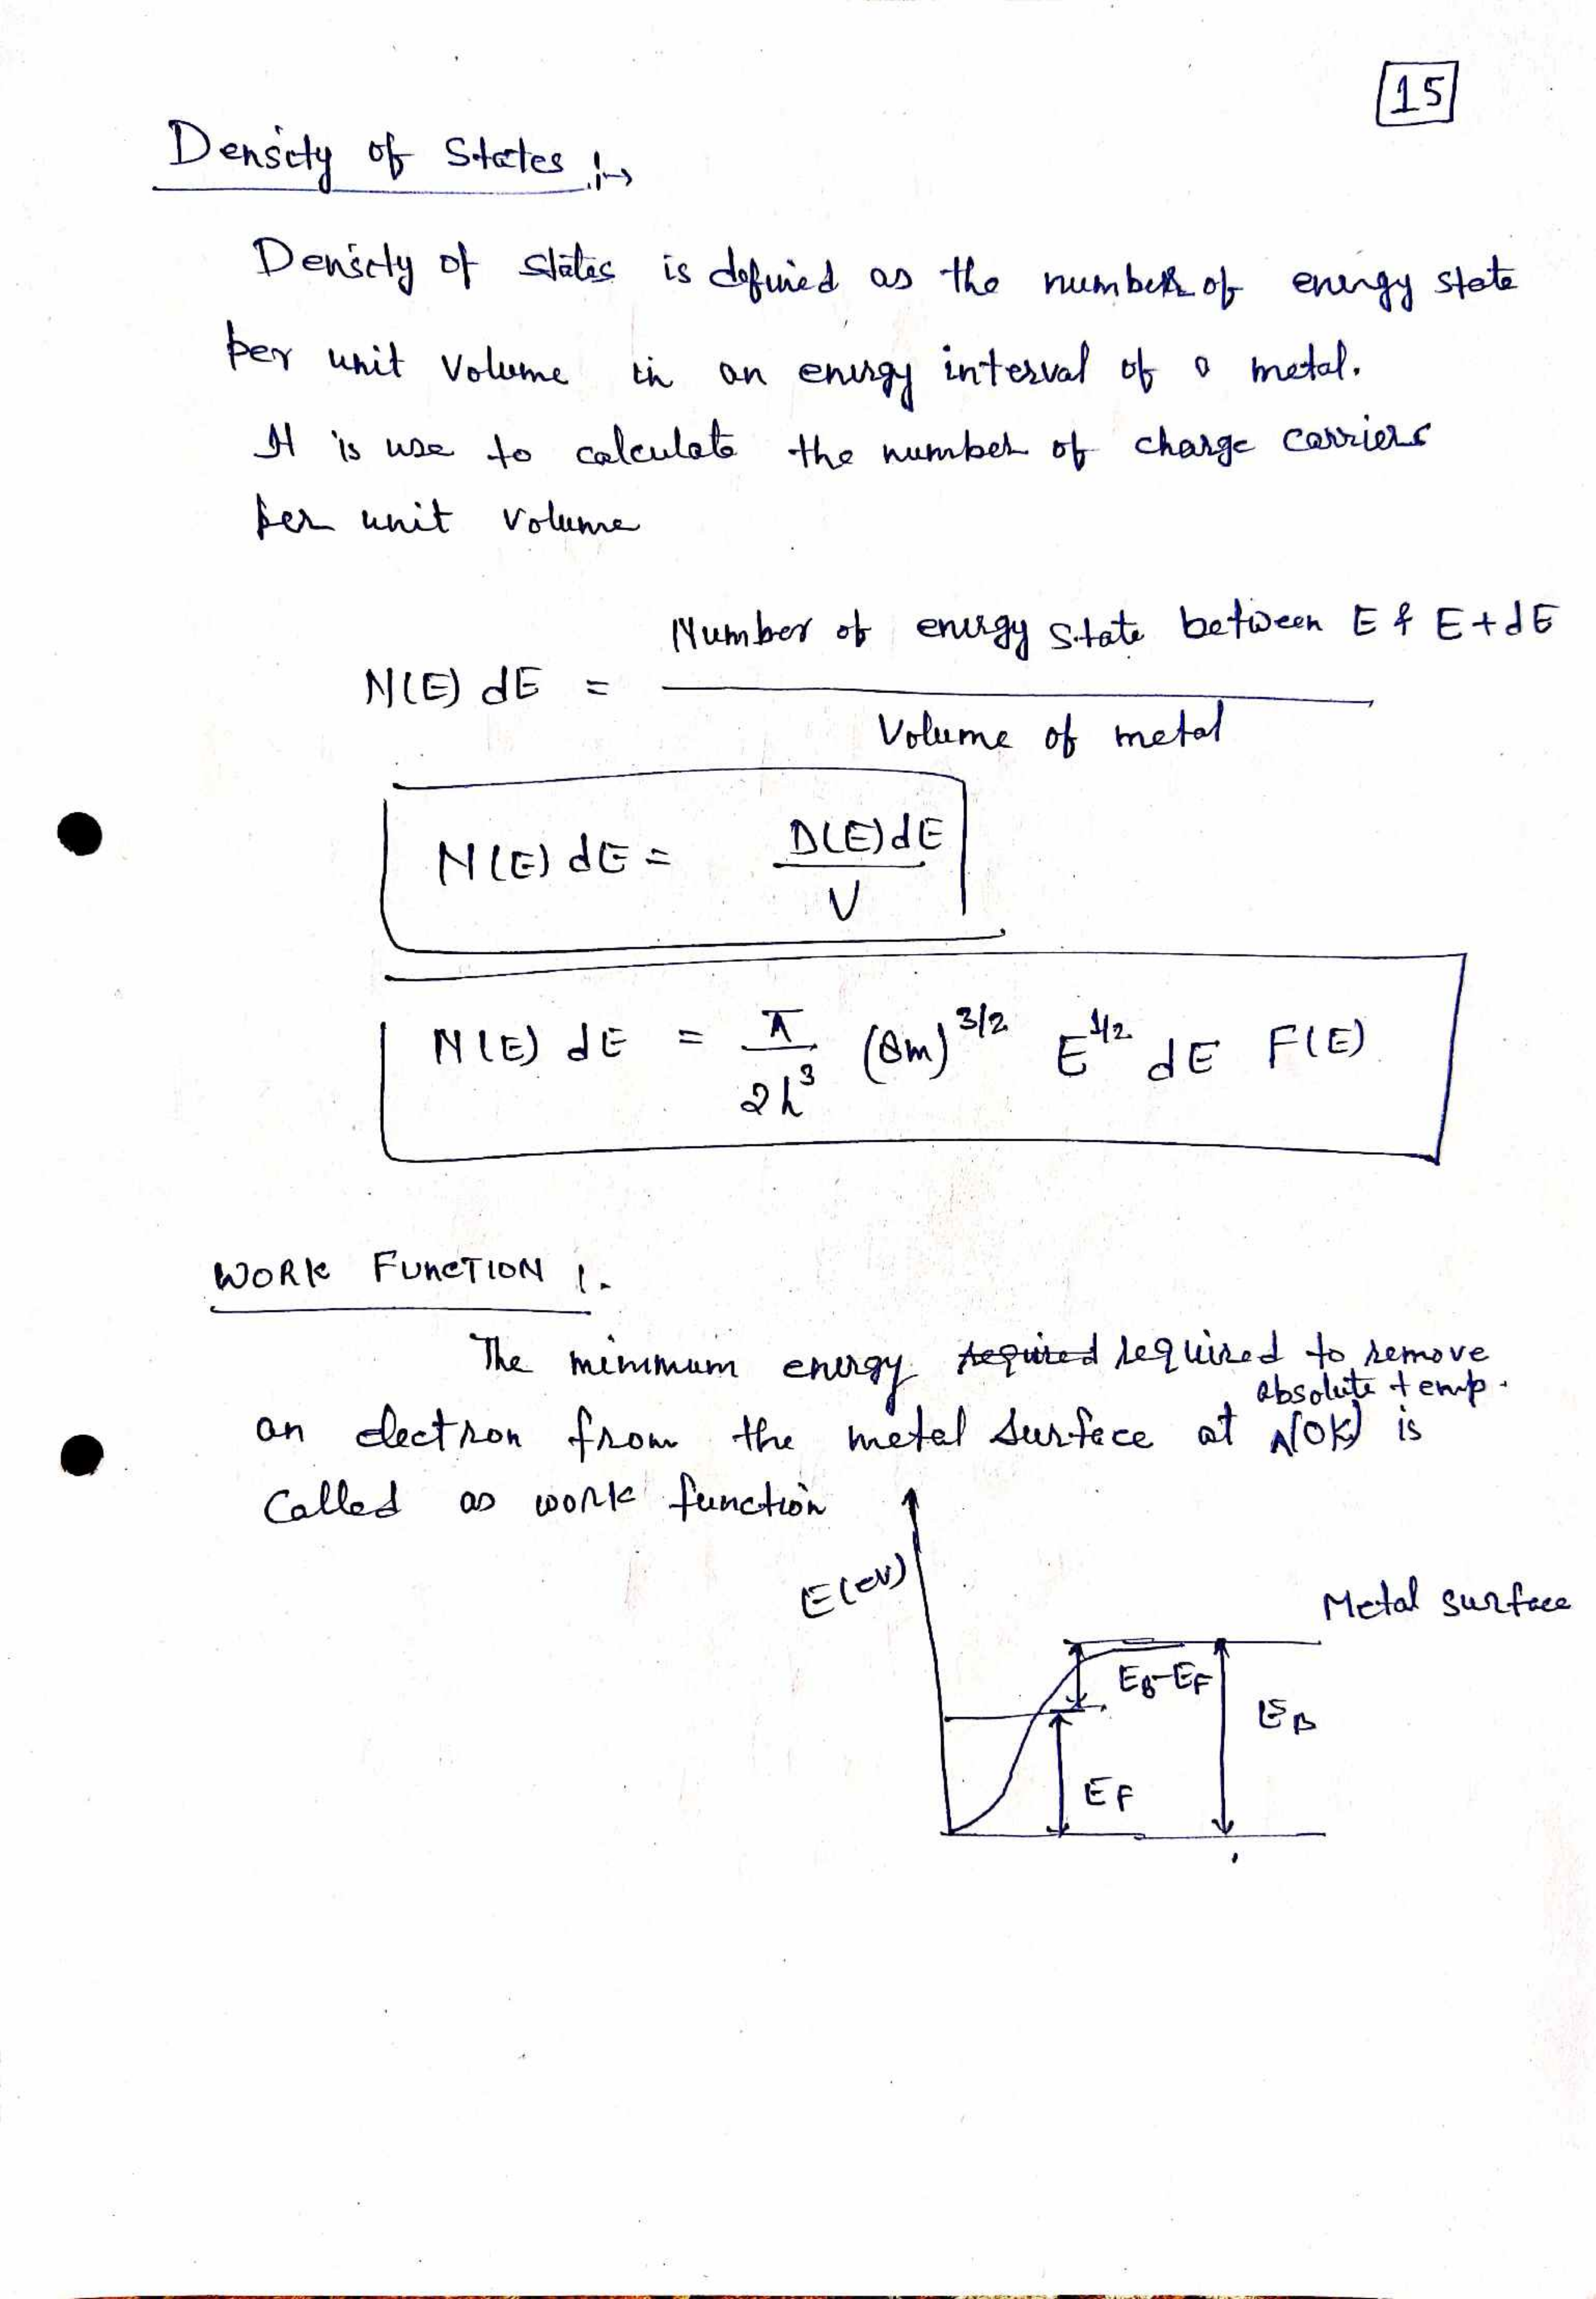 15
Density of States :→
Density of states is defined as the number of energy state
per unit volume in an energy interval of a metal.
It is use to calculate the number of charge carriers
per unit volume
Number of energy state between E & E+dE
N(E) dE = 
Volume of metal
N(E) dE = D(E)dE / V
N(E) dE = π / 2h³ (8m)^3/2 E^1/2 dE F(E)
WORK FUNCTION :-
The minimum energy required required to remove
absolute temp.
an electron from the metal surface at ^(0K) is
called as work function
E(eV)
Metal surface
EB-EF
EB
EF